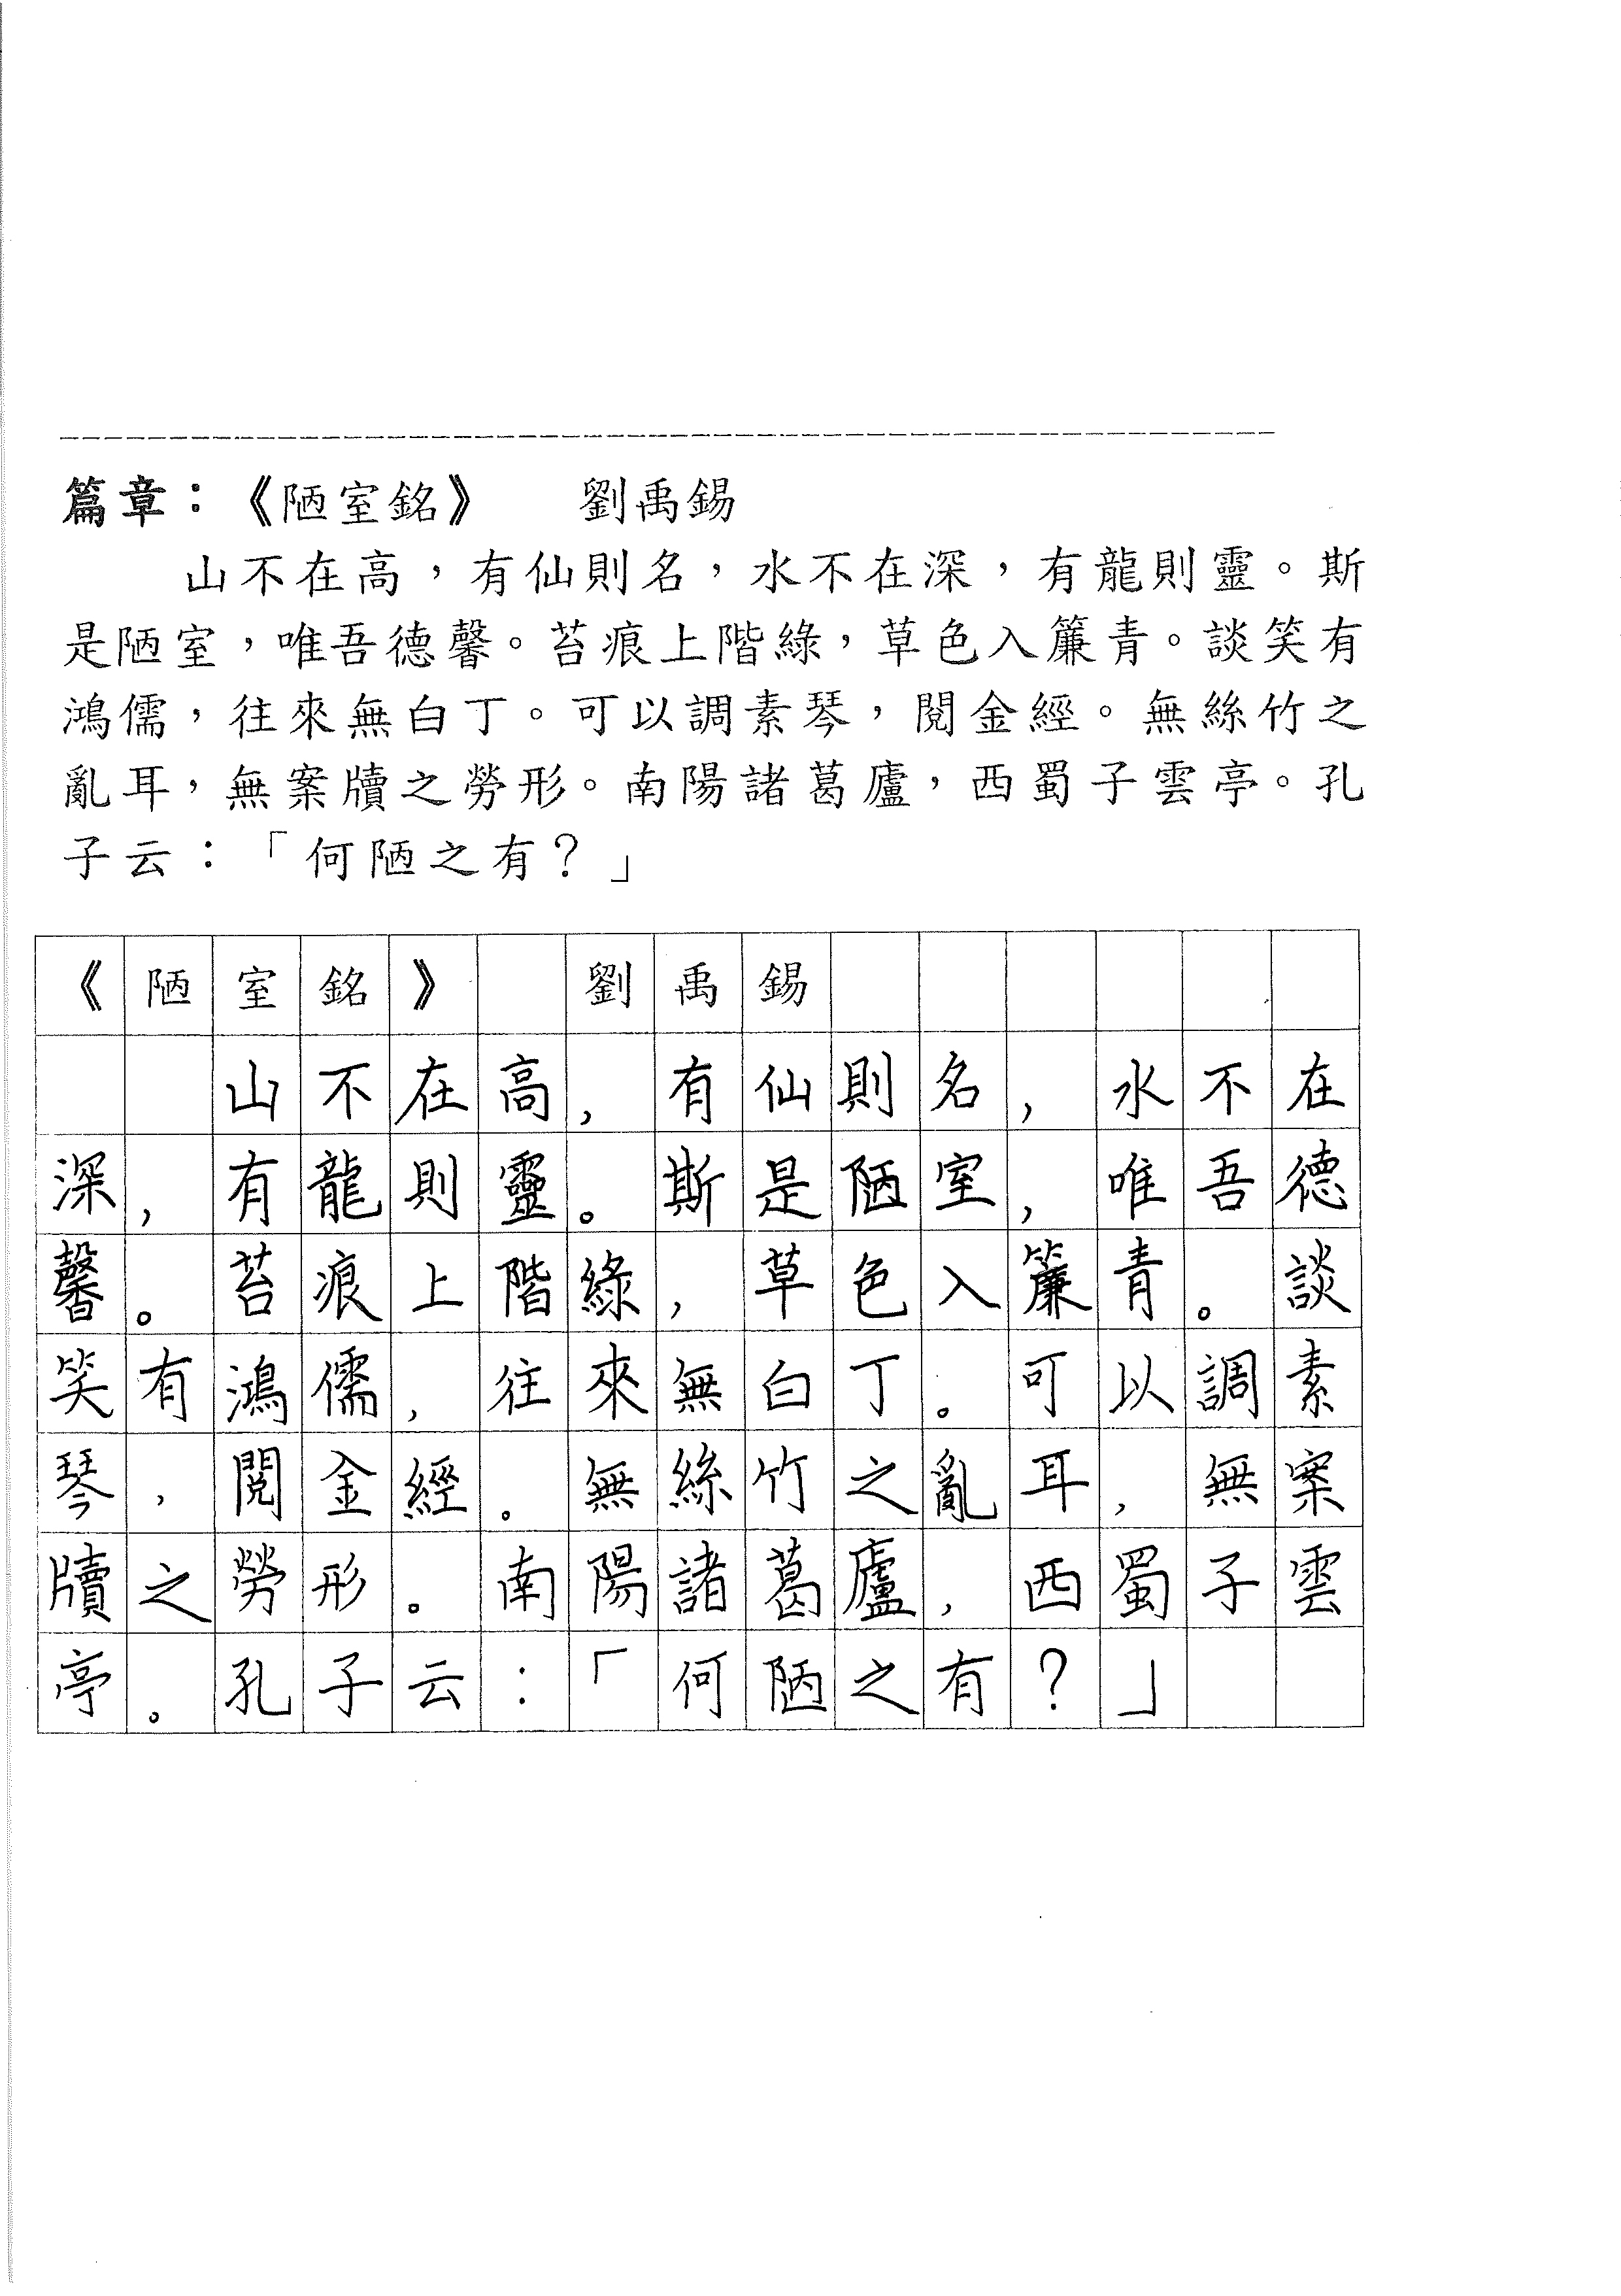 篇章：《陋室銘》　劉禹錫
山不在高，有仙則名，水不在深，有龍則靈。斯
是陋室，唯吾德馨。苔痕上階綠，草色入簾青。談笑有
鴻儒，往來無白丁。可以調素琴，閱金經。無絲竹之
亂耳，無案牘之勞形。南陽諸葛廬，西蜀子雲亭。孔
子云：「何陋之有？」
《陋室銘》　劉禹錫
山不在高，有仙則名，水不在
深，有龍則靈。斯是陋室，唯吾德
馨。苔痕上階綠，草色入簾青。談
笑有鴻儒，往來無白丁。可以調素
琴，閱金經。無絲竹之亂耳，無案
牘之勞形。南陽諸葛廬，西蜀子雲
亭。孔子云：「何陋之有？」